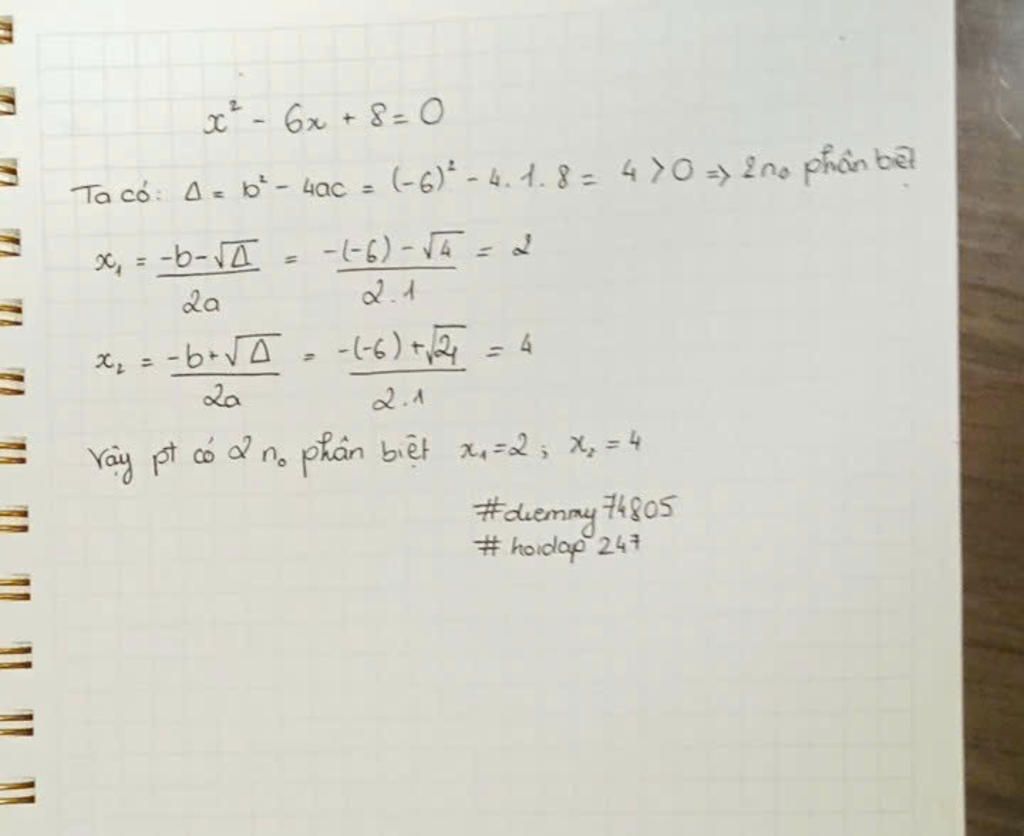 x² - 6x + 8 = 0
Ta có: Δ = b² - 4ac = (-6)² - 4.1.8 = 4 > 0 => 2 n₀ phân biệt
x₁ = (-b-√Δ)/2a = (-(-6)-√4)/2.1 = 2
x₂ = (-b+√Δ)/2a = (-(-6)+√4)/2.1 = 4
Vậy pt có 2 n₀ phân biệt x₁=2 ; x₂ = 4
#diemmy74805
# hoidap 247